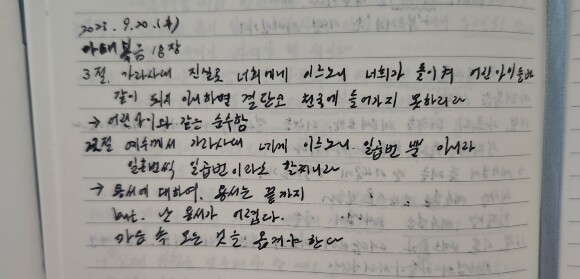 2023. 9. 20. (수)
마태복음 18장
3절. 가라사대 진실로 너희에게 이르노니 너희가 돌이켜 어린아이들과
같이 되지 아니하면 결단코 천국에 들어가지 못하리라
→ 어린 아이와 같은 순수함
22절 예수께서 가라사대 네게 이르노니 일곱번 뿐 아니라
일흔번씩 일곱번이라도 할찌니라
→ 용서에 대하여. 용서는 끝까지
but. 난 용서가 어렵다.
마음 속 모든 것을 옮겨야 한다